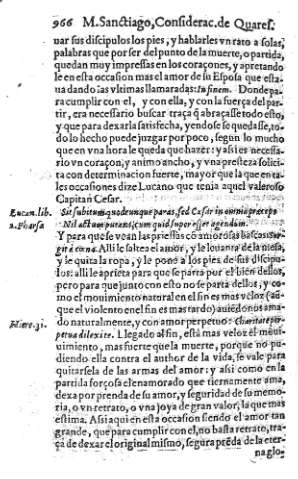 966 M. Sanctiago, Considerac. de Quares.
uar sus discipulos los pies, y hablarles vn rato a solas,
palabras que por ser del punto de la muerte, o partida,
quedan muy impressas en los coraçones, y apretando
le en esta occasion mas el amor de su Esposa que esta-
ua dando las vltimas llamaradas: In finem. Donde pa-
ra cumplir con el, y con ella, y con la fuerça del par-
tir, era necessario buscar traça q̃ abraçasse todo esto,
y que para dexarla satisfecha, yendose se quedasse, to-
do lo hecho puede juzgar por poco, segun lo mucho
que en vna hora le queda que hazer: y assi es necessa-
rio vn coraçon, y animo ancho, y vna presteza solici-
ta con determinacion fuerte, mayor que la que en ta-
les occasiones dize Lucano que tenia aquel valeroso
Capitan Cesar.
Lucan. lib. 2. Pharsa
sed Cæsar in omnia præceps
Nil actum credens, cum quid superesset agendum.
Y para que se vean las priessas
Alli le saltea el amor, y le leuanta de la mesa,
y le quita la ropa, y le pone a los pies de sus discipu-
los: alli le aprieta para que se parta por el bien dellos,
pero para que junto con esto no se parta dellos, y co-
mo el mouimiento natural en el fin es mas veloz (aũ-
que el violento en el fin es mas tardo) auiẽdonos ama-
do naturalmente, y con amor perpetuo: Charitate per-
Hiere. 31.
petua dilexi te. Llegado al fin, esta mas veloz el mou-
uimiento, mas fuerte que la muerte, porque no pu-
diendo ella contra el author de la vida, se vale para
quitarsela de las armas del amor: y assi como en la
partida forçosa el enamorado que tiernamente ama,
dexa por prenda de su amor, y seguridad de su memo-
ria, o vn retrato, o vna joya de gran valor, la que mas
estima. Assi aqui en esta occasion siendo el amor tan
grande, que para cumplir con el, no basta retrato, tra-
ça de dexar el original mismo, segura prẽda de la eter-
na glo-